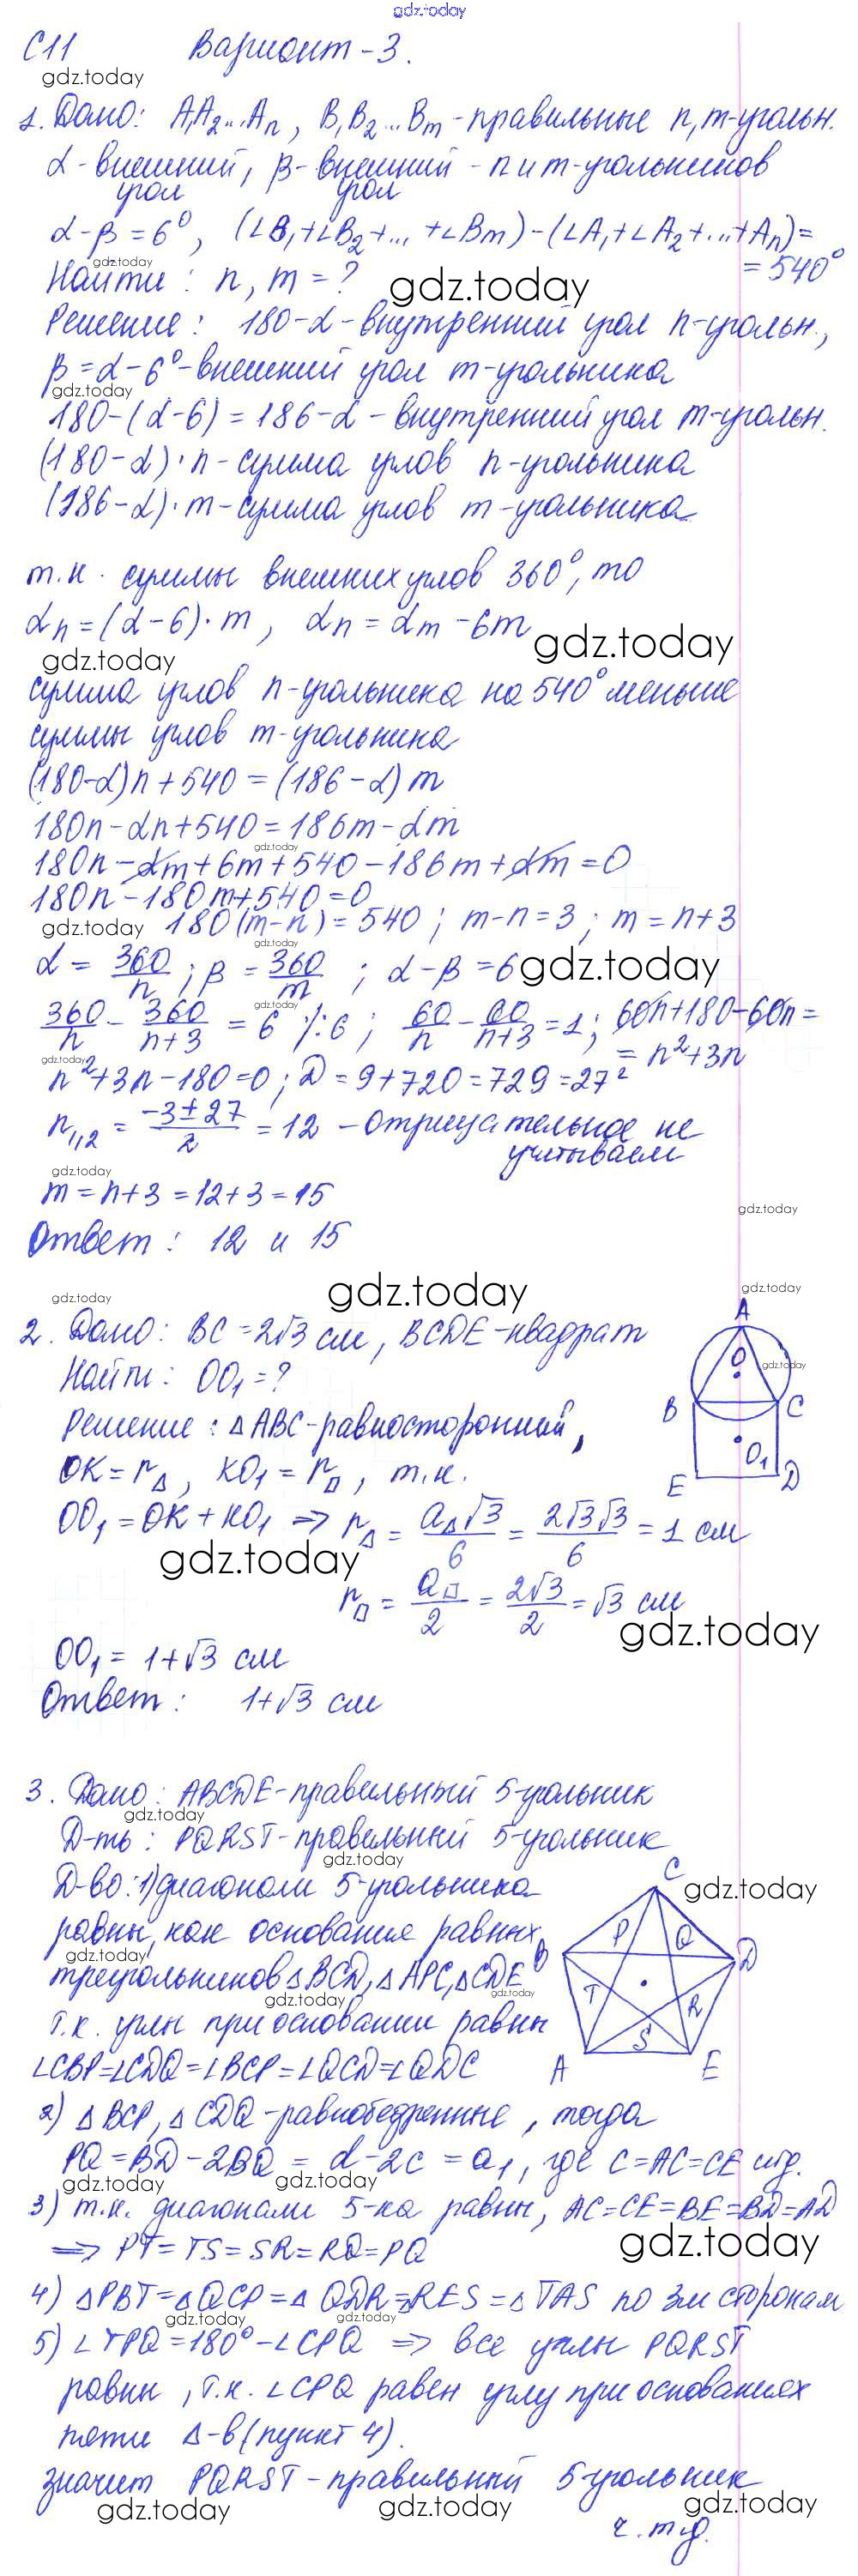 gdz.today
С11 Вариант-3.
gdz.today
1. Дано: A₁A₂...Aₙ, B₁B₂...Bₘ - правильные n, m-угольн.
α - внешний угол, β - внешний угол - n и m-угольников
α-β=6°, (∠B₁+∠B₂+...+∠Bm)-(∠A₁+∠A₂+...+Aₙ)=
=540°
gdz.today
Найти: n, m = ?
gdz.today
Решение: 180-α - внутренний угол n-угольн.,
β=α-6° - внешний угол m-угольника
gdz.today
180-(α-6)=186-α - внутренний угол m-угольн.
(180-α)·n - сумма углов n-угольника
(186-α)·m - сумма углов m-угольника
т.к. суммы внешних углов 360°, то
αn=(α-6)·m, αn=αm-6m
gdz.today
gdz.today
сумма углов n-угольника на 540° меньше
суммы углов m-угольника
(180-α)n+540=(186-α)m
180n-αn+540=186m-αm
gdz.today
180n-αm+6m+540-186m+αm=0
180n-180m+540=0
gdz.today
180(m-n)=540; m-n=3; m=n+3
gdz.today
α=360/n; β=360/m; α-β=6
gdz.today
gdz.today
360/n - 360/(n+3) = 6 /:6; 60/n - 60/(n+3) = 1; 60n+180-60n=
= n²+3n
gdz.today
n²+3n-180=0; D=9+720=729=27²
n₁,₂ = (-3±27)/2 = 12 - отрицательное не
учитываем
gdz.today
m=n+3=12+3=15
gdz.today
Ответ: 12 и 15
gdz.today
gdz.today
gdz.today
2. Дано: BC=2√3 см, BCDE-квадрат
Найти: OO₁=?
Решение: △ABC-равносторонний,
OK=r△, KO₁=r□, т.к.
OO₁=OK+KO₁ ⇒ r△ = a△√3/6 = 2√3√3/6 = 1 см
gdz.today
r□ = a□/2 = 2√3/2 = √3 см
gdz.today
OO₁=1+√3 см
Ответ: 1+√3 см
A
O
gdz.today
B C
O₁
E D
3. Дано: ABCDE-правильный 5-угольник
gdz.today
Д-ть: PQRST-правильный 5-угольник
gdz.today
Д-во: 1) диагонали 5-угольника
gdz.today
равны, как основания равных
gdz.today
треугольников △BCD, △APC, △CDE
gdz.today
gdz.today
т.к. углы при основании равны
∠CBP=∠CDQ=∠BCP=∠QCD=∠QDC
C
P Q
B D
T R
S
A E
2) △BCP, △CDQ-равнобедренные, тогда
PQ=BD-2BQ=d-2c=a₁, где c=AC=CE итд.
gdz.today
gdz.today
3) т.к. диагонали 5-ка равны, AC=CE=BE=BD=AD
⇒ PT=TS=SR=RQ=PQ
gdz.today
4) △PBT=△QCP=△QDR=△RES=△TAS по 3м сторонам
gdz.today
gdz.today
5) ∠TPQ=180°-∠CPQ ⇒ все углы PQRST
равны, т.к. ∠CPQ равен углу при основаниях
пяти △-в (пункт 4).
значит PQRST-правильный 5-угольник
gdz.today
gdz.today
gdz.today
ч.т.д.